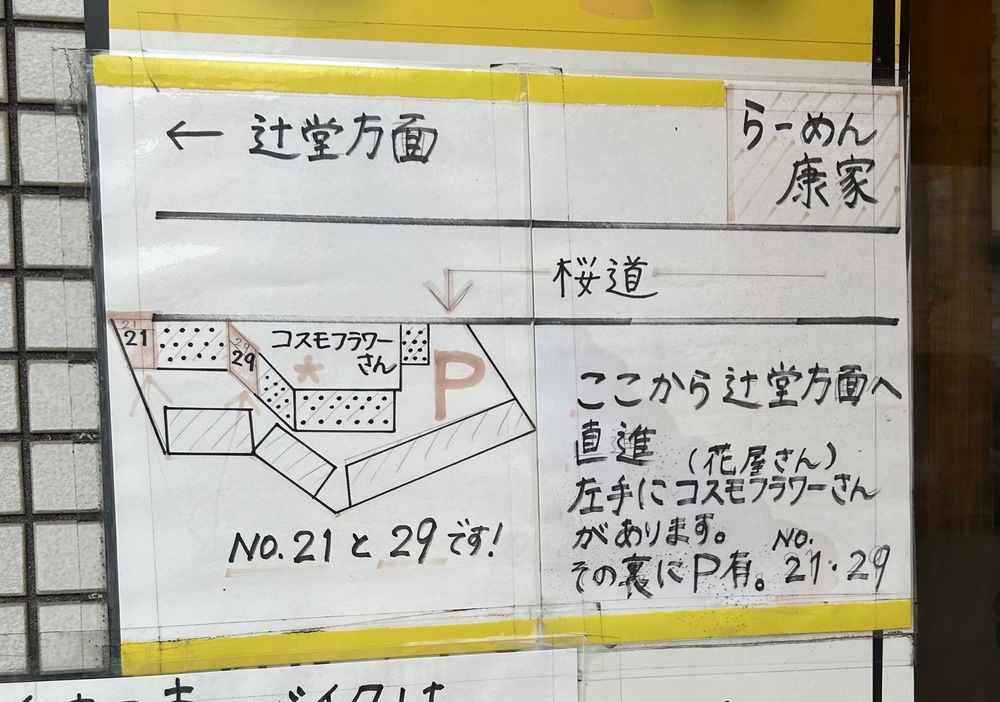 ← 辻堂方面
らーめん
康家
桜道
21
21
29
29
コスモフラワー
さん
P
NO.21と29です!
ここから辻堂方面へ
直進
(花屋さん)
左手にコスモフラワーさん
があります。
その裏にP有。
NO.
21・29